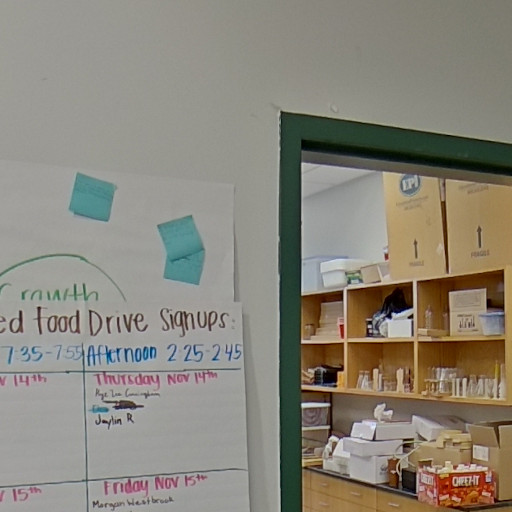 Growth
ed Food Drive Signups:
7:35-7:55 Afternoon 2:25-2:45
v 14th Thursday Nov 14th
Jaylin R
v 15th Friday Nov 15th
Morgan Westbrook
EPI
FRAGILE
FRAGILE
CHEEZ-IT